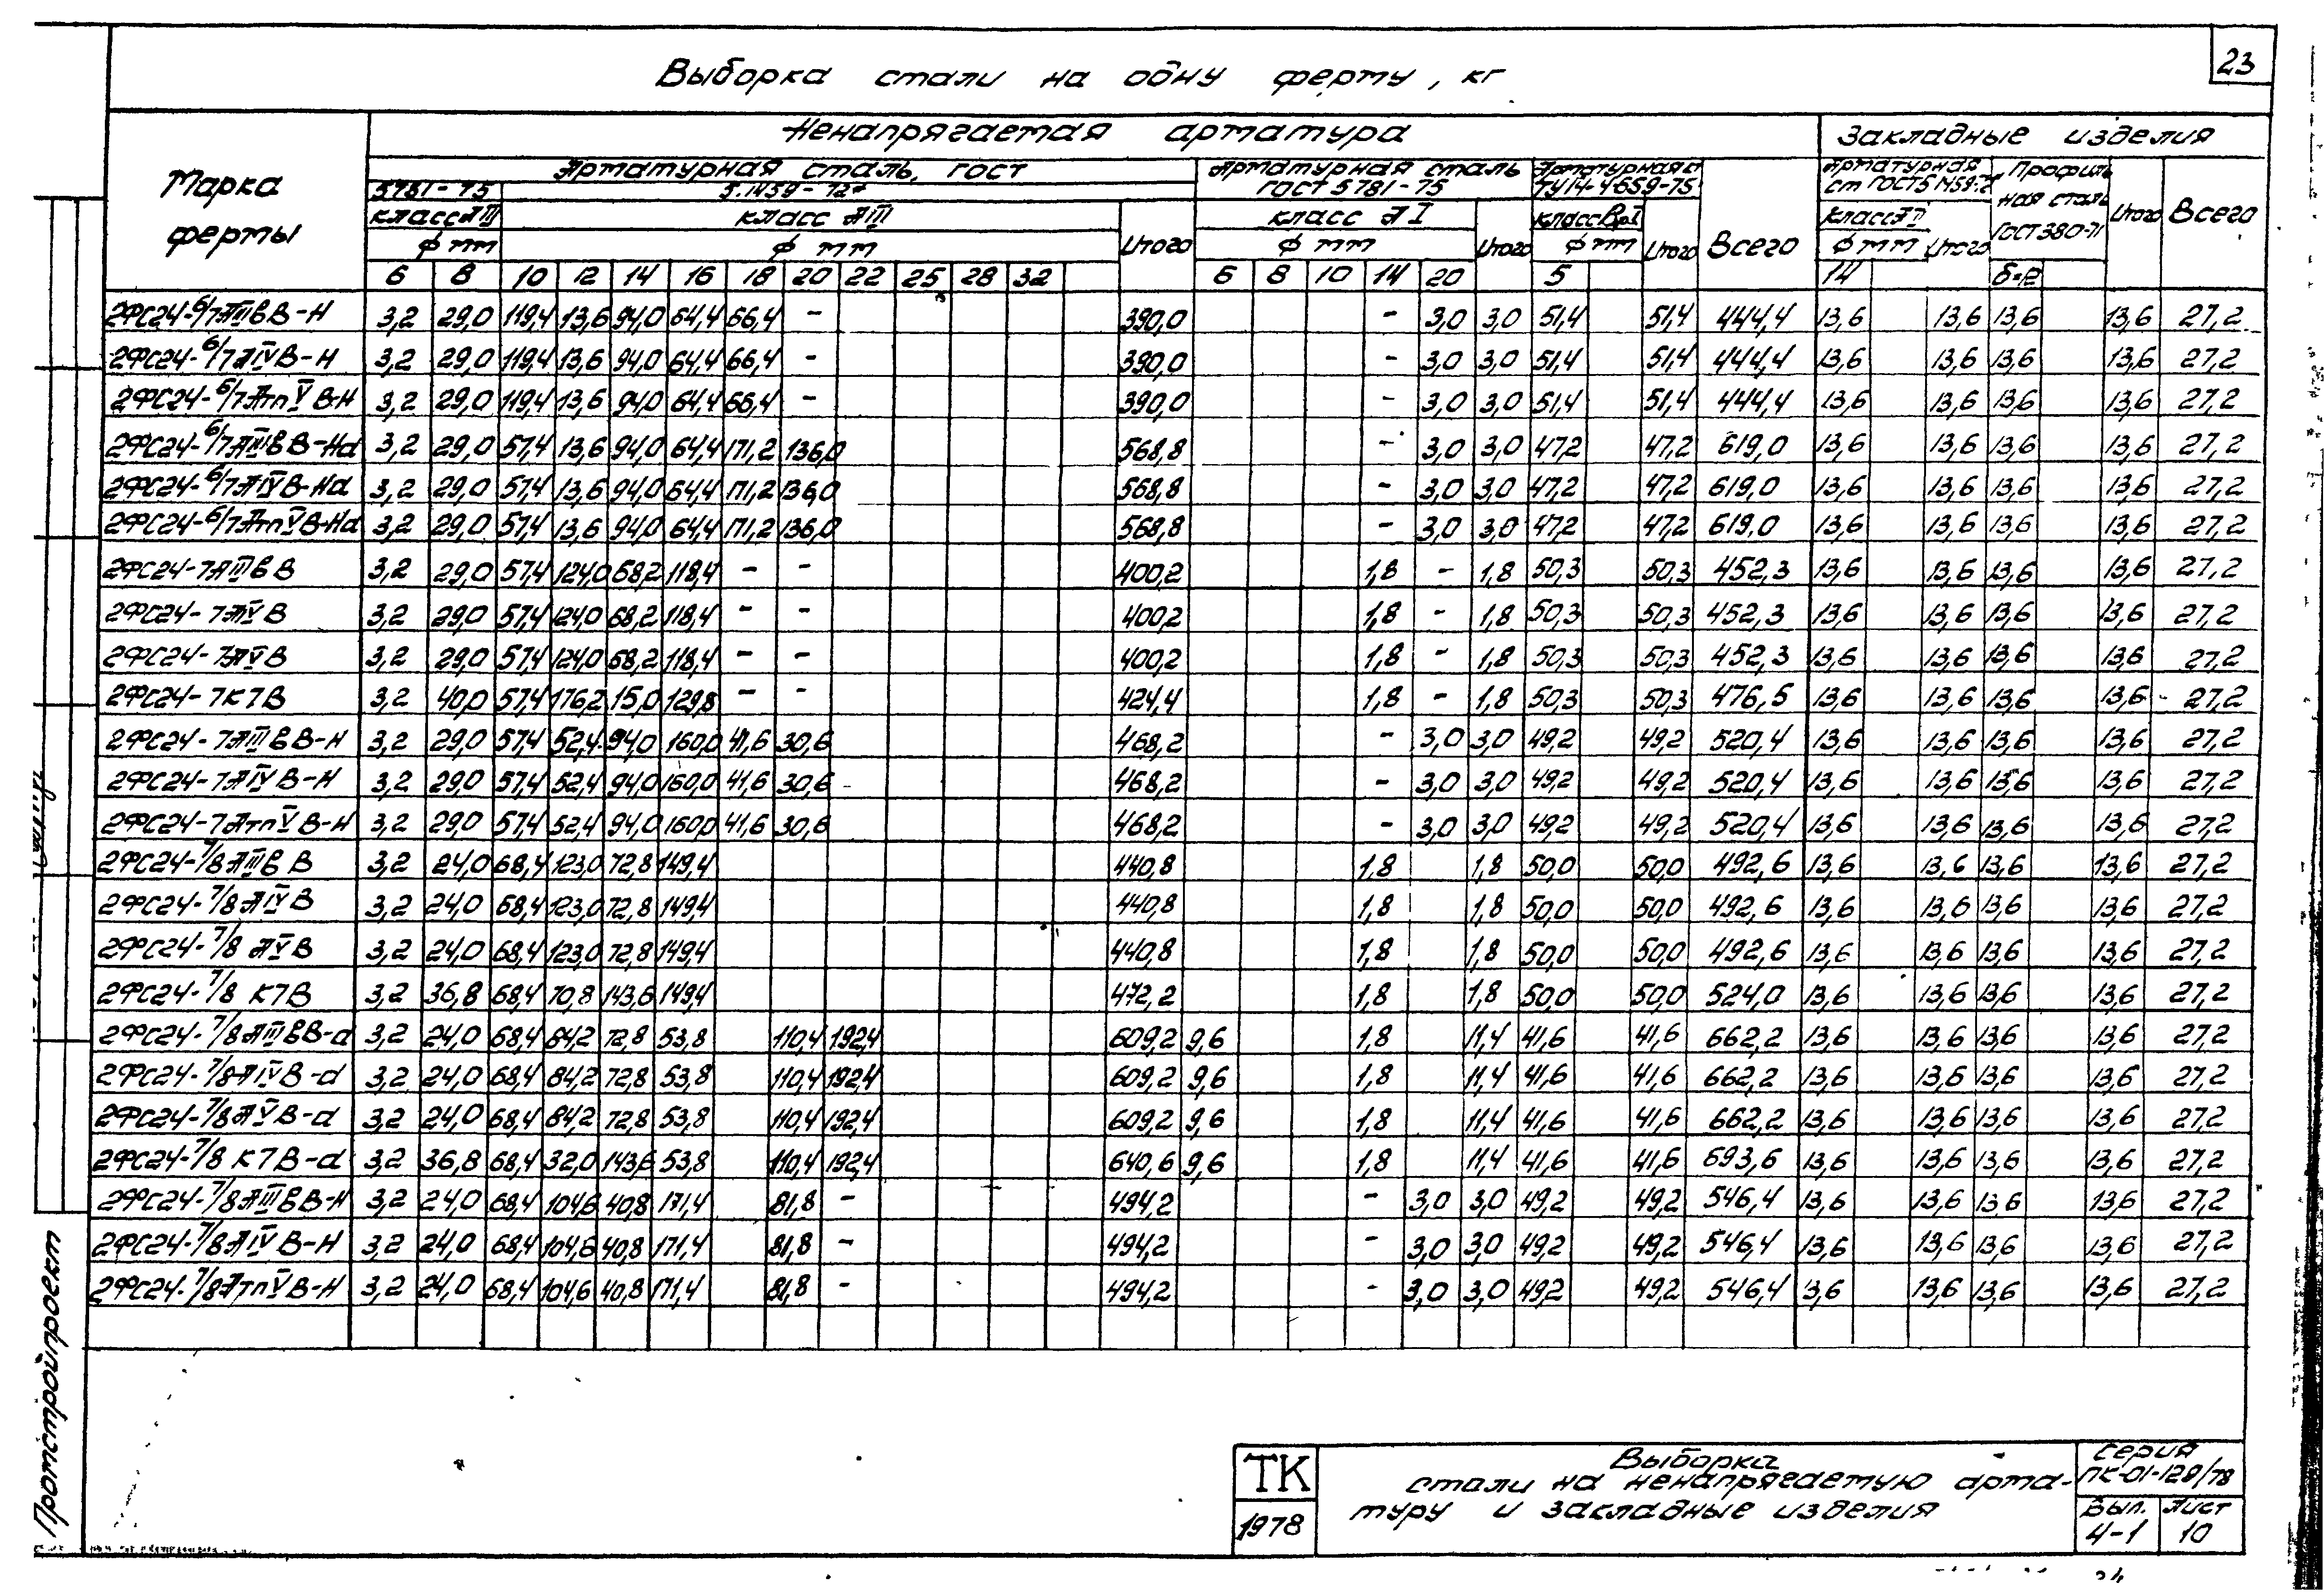 23
Выборка стали на одну ферму, кг
Марка фермы
Ненапрягаемая арматура
Закладные изделия
Арматурная сталь, ГОСТ
Арматурная сталь ГОСТ 5781-75
Арматурная ст ТУ14-4-659-75
Всего
Арматурная ст ГОСТ5.1459-72*
Профильная сталь ГОСТ380-71
Итого
Всего
5781-75
5.1459-72*
класс АIII
класс АIII
Итого
класс АI
Итого
класс ВрI
Итого
класс
Итого
ф мм
ф мм
ф мм
ф мм
ф мм
6 8 10 12 14 16 18 20 22 25 28 32 6 8 10 14 20 5 14
2ФС24-6/7АIIIвВ-Н 3,2 29,0 119,4 13,6 94,0 64,4 66,4 - 390,0 - 3,0 3,0 51,4 51,4 444,4 13,6 13,6 13,6 13,6 27,2
2ФС24-6/7АIVВ-Н 3,2 29,0 119,4 13,6 94,0 64,4 66,4 - 390,0 - 3,0 3,0 51,4 51,4 444,4 13,6 13,6 13,6 13,6 27,2
2ФС24-6/7АтпVВ-Н 3,2 29,0 119,4 13,6 94,0 64,4 66,4 - 390,0 - 3,0 3,0 51,4 51,4 444,4 13,6 13,6 13,6 13,6 27,2
2ФС24-6/7АIIIвВ-На 3,2 29,0 57,4 13,6 94,0 64,4 171,2 136,0 568,8 - 3,0 3,0 47,2 47,2 619,0 13,6 13,6 13,6 13,6 27,2
2ФС24-6/7АIVВ-На 3,2 29,0 57,4 13,6 94,0 64,4 171,2 136,0 568,8 - 3,0 3,0 47,2 47,2 619,0 13,6 13,6 13,6 13,6 27,2
2ФС24-6/7АтпVВ-На 3,2 29,0 57,4 13,6 94,0 64,4 171,2 136,0 568,8 - 3,0 3,0 47,2 47,2 619,0 13,6 13,6 13,6 13,6 27,2
2ФС24-7АIIIвВ 3,2 29,0 57,4 124,0 68,2 118,4 - - 400,2 1,8 - 1,8 50,3 50,3 452,3 13,6 13,6 13,6 13,6 27,2
2ФС24-7АIVВ 3,2 29,0 57,4 124,0 68,2 118,4 - - 400,2 1,8 - 1,8 50,3 50,3 452,3 13,6 13,6 13,6 13,6 27,2
2ФС24-7АVВ 3,2 29,0 57,4 124,0 68,2 118,4 - - 400,2 1,8 - 1,8 50,3 50,3 452,3 13,6 13,6 13,6 13,6 27,2
2ФС24-7К7В 3,2 40,0 57,4 176,2 15,0 129,8 - - 424,4 1,8 - 1,8 50,3 50,3 476,5 13,6 13,6 13,6 13,6 27,2
2ФС24-7АIIIвВ-Н 3,2 29,0 57,4 52,4 94,0 160,0 41,6 30,6 468,2 - 3,0 3,0 49,2 49,2 520,4 13,6 13,6 13,6 13,6 27,2
2ФС24-7АIVВ-Н 3,2 29,0 57,4 52,4 94,0 160,0 41,6 30,6 468,2 - 3,0 3,0 49,2 49,2 520,4 13,6 13,6 13,6 13,6 27,2
2ФС24-7АтпVВ-Н 3,2 29,0 57,4 52,4 94,0 160,0 41,6 30,6 468,2 - 3,0 3,0 49,2 49,2 520,4 13,6 13,6 13,6 13,6 27,2
2ФС24-7/8АIIIвВ 3,2 24,0 68,4 123,0 72,8 149,4 440,8 1,8 1,8 50,0 50,0 492,6 13,6 13,6 13,6 13,6 27,2
2ФС24-7/8АIVВ 3,2 24,0 68,4 123,0 72,8 149,4 440,8 1,8 1,8 50,0 50,0 492,6 13,6 13,6 13,6 13,6 27,2
2ФС24-7/8АVВ 3,2 24,0 68,4 123,0 72,8 149,4 440,8 1,8 1,8 50,0 50,0 492,6 13,6 13,6 13,6 13,6 27,2
2ФС24-7/8К7В 3,2 36,8 68,4 70,8 143,6 149,4 472,2 1,8 1,8 50,0 50,0 524,0 13,6 13,6 13,6 13,6 27,2
2ФС24-7/8АIIIвВ-а 3,2 24,0 68,4 84,2 72,8 53,8 110,4 192,4 609,2 9,6 1,8 11,4 41,6 41,6 662,2 13,6 13,6 13,6 13,6 27,2
2ФС24-7/8АIVВ-а 3,2 24,0 68,4 84,2 72,8 53,8 110,4 192,4 609,2 9,6 1,8 11,4 41,6 41,6 662,2 13,6 13,6 13,6 13,6 27,2
2ФС24-7/8АVВ-а 3,2 24,0 68,4 84,2 72,8 53,8 110,4 192,4 609,2 9,6 1,8 11,4 41,6 41,6 662,2 13,6 13,6 13,6 13,6 27,2
2ФС24-7/8К7В-а 3,2 36,8 68,4 32,0 143,6 53,8 110,4 192,4 640,6 9,6 1,8 11,4 41,6 41,6 693,6 13,6 13,6 13,6 13,6 27,2
2ФС24-7/8АIIIвВ-Н 3,2 24,0 68,4 104,6 40,8 171,4 81,8 - 494,2 - 3,0 3,0 49,2 49,2 546,4 13,6 13,6 13,6 13,6 27,2
2ФС24-7/8АIVВ-Н 3,2 24,0 68,4 104,6 40,8 171,4 81,8 - 494,2 - 3,0 3,0 49,2 49,2 546,4 13,6 13,6 13,6 13,6 27,2
2ФС24-7/8АтпVВ-Н 3,2 24,0 68,4 104,6 40,8 171,4 81,8 - 494,2 - 3,0 3,0 49,2 49,2 546,4 13,6 13,6 13,6 13,6 27,2
Промстройпроект
ТК
1978
Выборка
стали на ненапрягаемую арма-
туру и закладные изделия
Серия
ПК-01-129/78
Вып. Лист
4-1 10